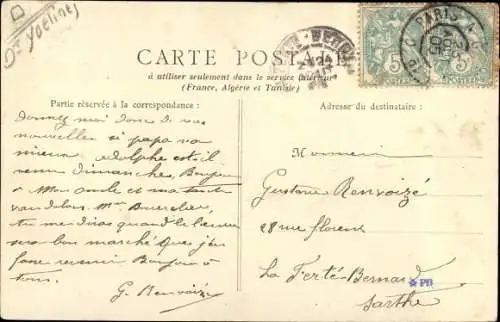 Dr Yvelines
CARTE POSTALE
à utiliser seulement dans le service intérieur
(France, Algérie et Tunisie)
PARIS
5
5
Partie réservée à la correspondance :
Donnez moi donc de vos
nouvelles si papa va
mieux adolphe est-il
venu dimanches, Bonjour
a Mon oncle et ma tante
tu me diras quand le
sera bon marché que j'en
fasse revenir Bonjour à
tous.
G. Renvoizé
Adresse du destinataire :
Monsieur
Gustave Renvoizé
28 rue florent
La Ferté-Bernard
PB
Sarthe